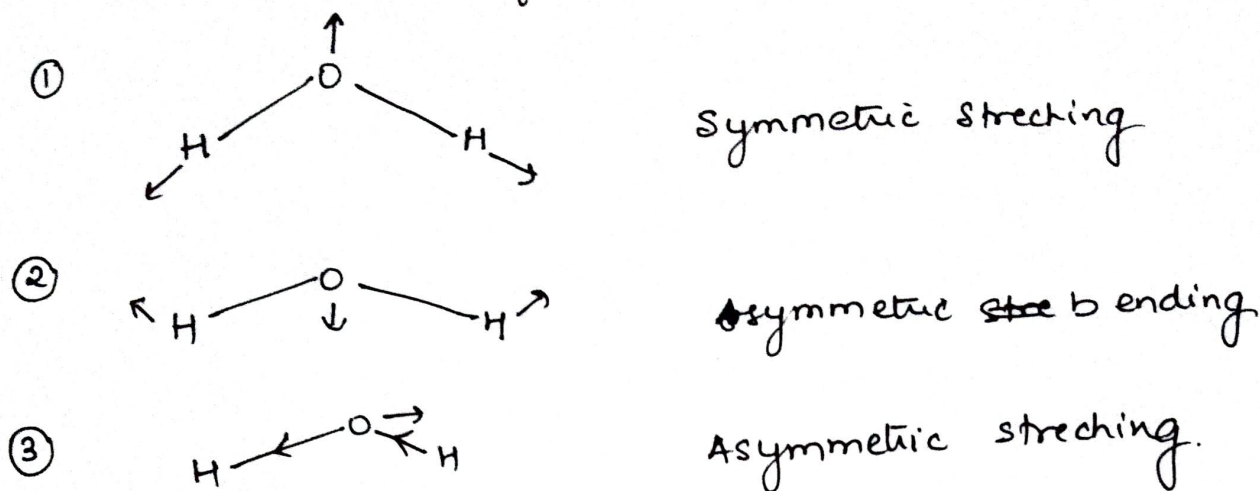 ①
O
H H
Symmetric Streching
②
O
H H
symmetric bending
③
O
H H
Asymmetric streching.